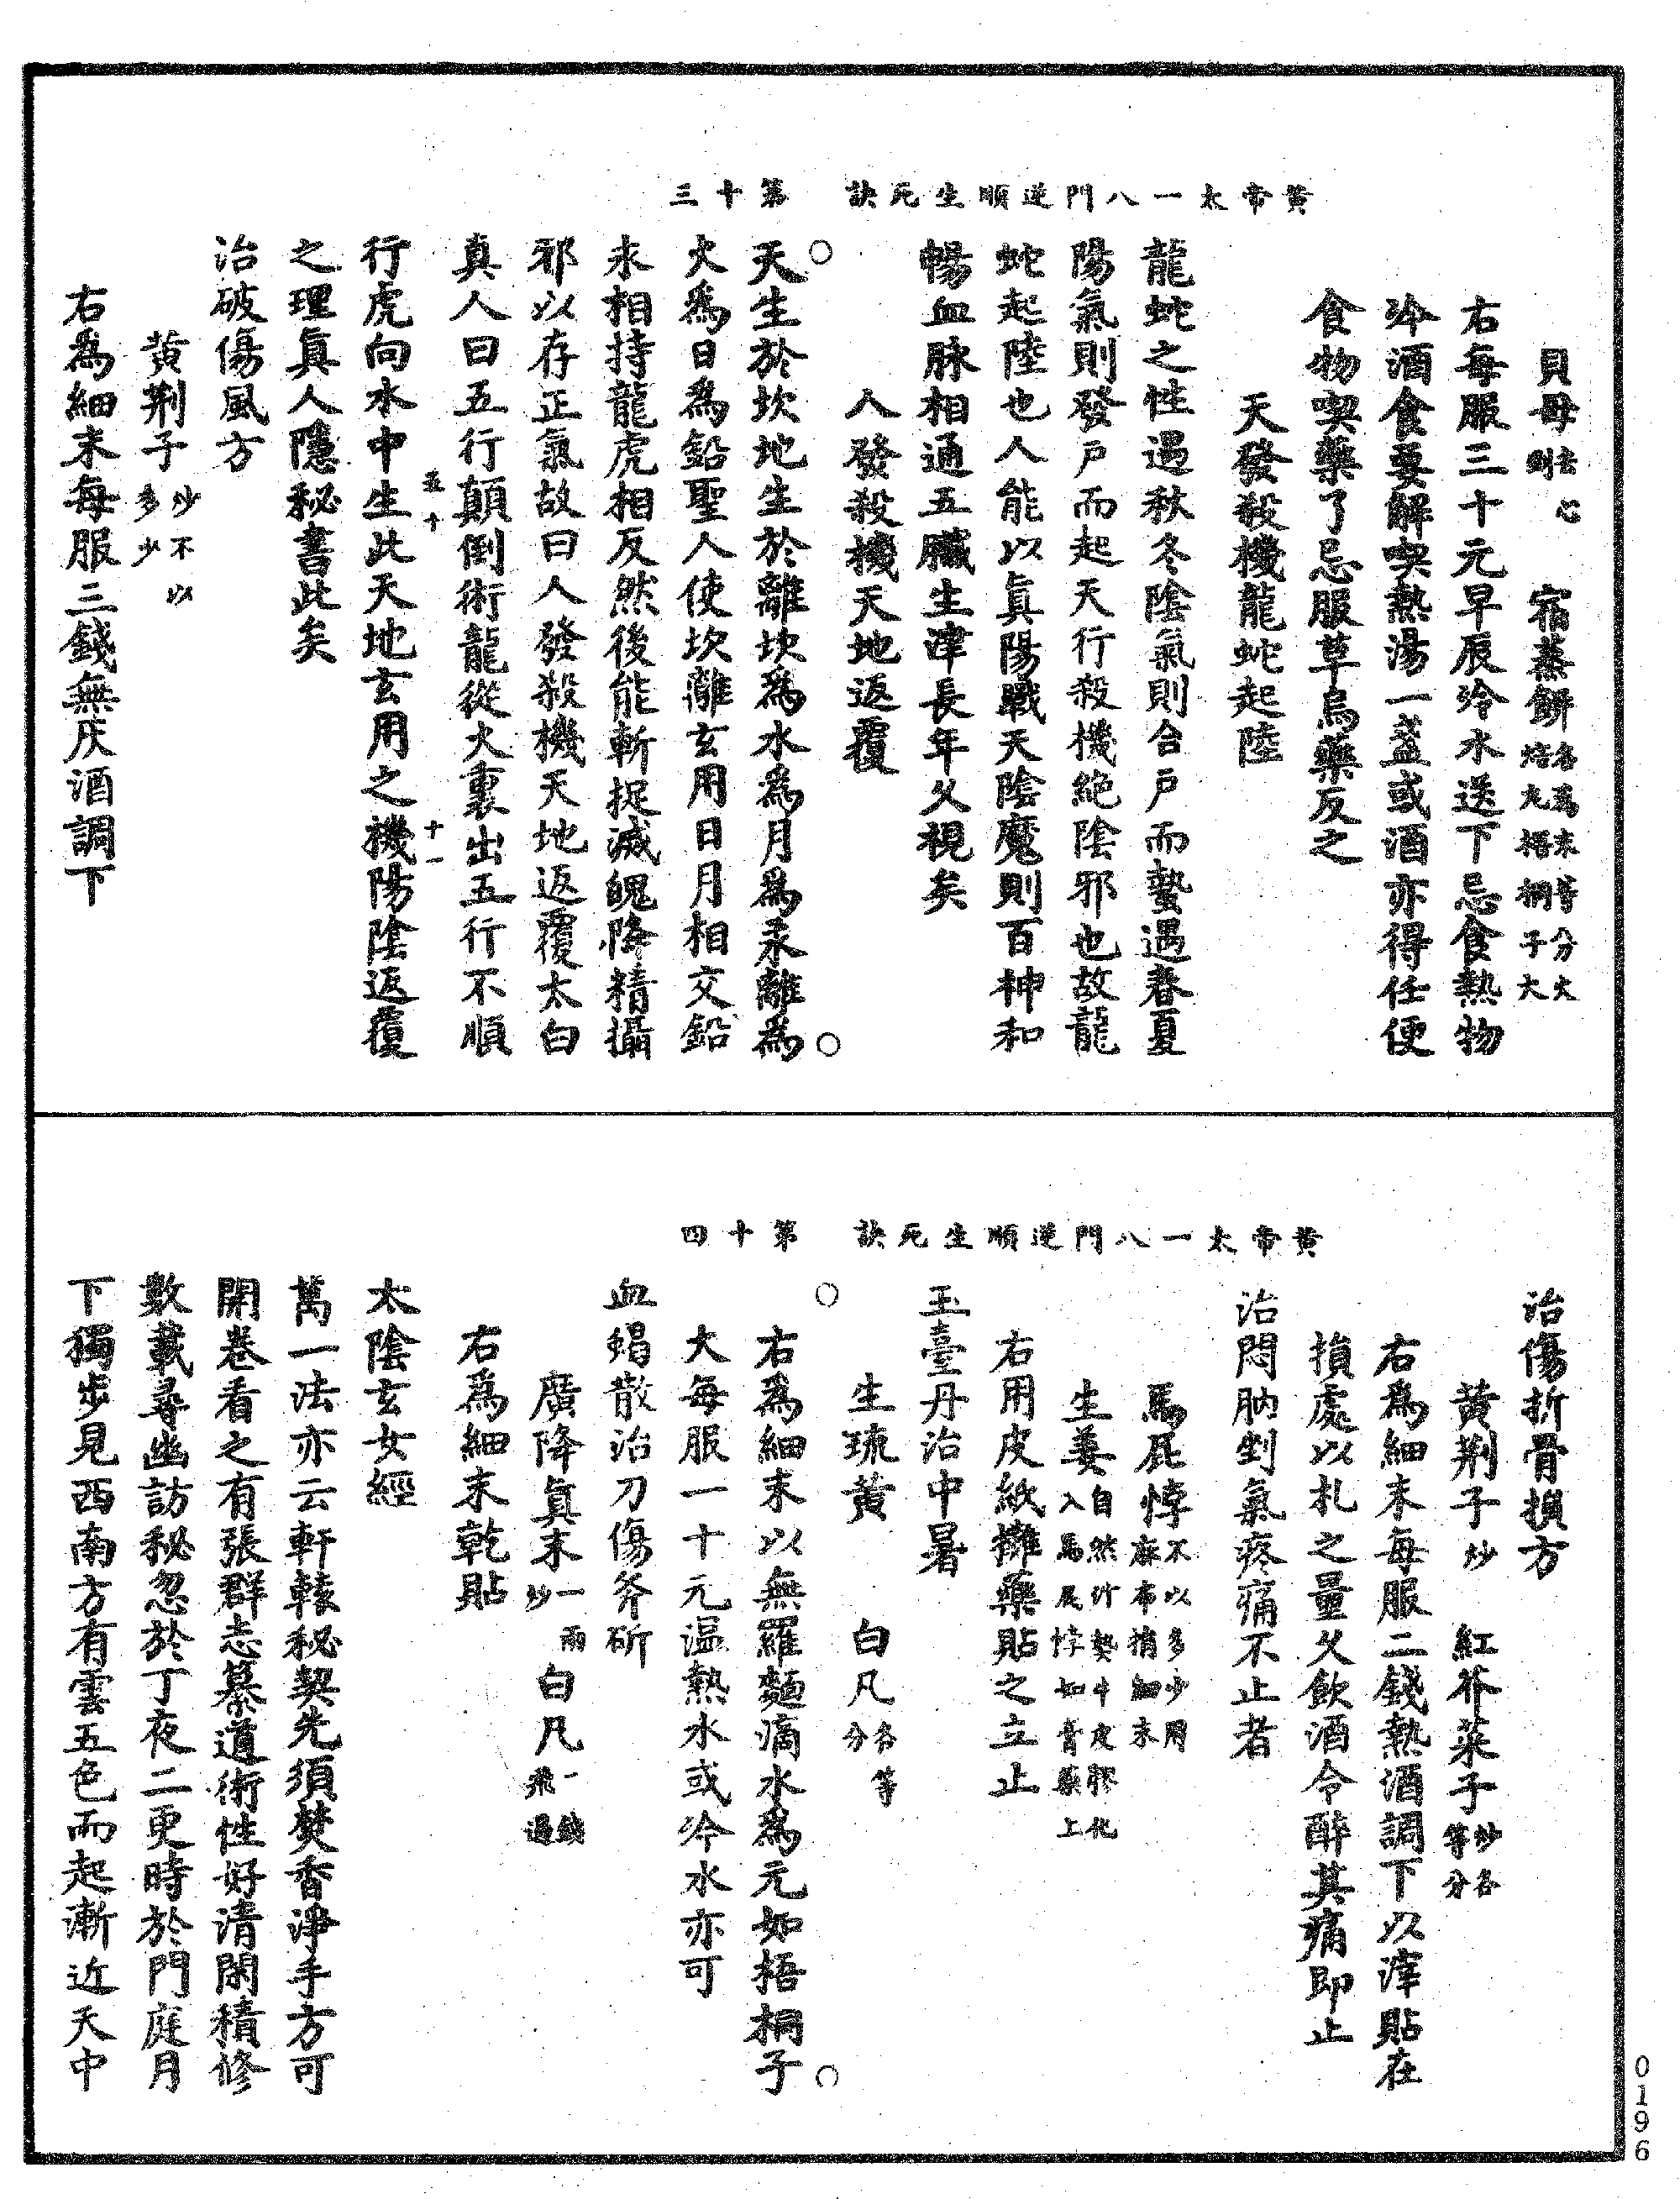 黃帝太一八門逆順生死訣　第十三
貝母去心剉　宿蒸餅各為末等分火焙丸梧桐子大
右每服三十元早辰冷水送下忌食熱物
冷酒食要解喫熱湯一盞或酒亦得任便
食物喫藥了忌服草烏藥反之
天發殺機龍蛇起陸
龍蛇之性遇秋冬陰氣則合戶而蟄遇春夏
陽氣則發戶而起天行殺機絕陰邪也故龍
蛇起陸也人能以眞陽戰天陰魔則百神和
暢血脉相通五臟生津長年乆視矣
人發殺機天地返覆
天生於坎地生於離坎為水為月為汞離為
火為日為鉛聖人使坎離玄用日月相交鉛
汞相持龍虎相反然後能斬捉滅魄降精攝
邪以存正氣故曰人發殺機天地返覆太白
真人曰五行顛倒術龍從火裏出五行不順
五十　十一
行虎向水中生此天地玄用之機陽陰返覆
之理眞人隱秘書此矣
治破傷風方
黃荆子炒不以多少
右為細末每服三錢無灰酒調下
黃帝太一八門逆順生死訣　第十四
治傷折骨損方
黃荆子炒　紅芥菜子炒各等分
右為細末每服二錢熱酒調下以滓貼在
損處以札之量乆飲酒令醉其痛即止
治悶肭剉氣疼痛不止者
馬屁悖不以多少用麻布捎細末
生姜自然汁熬牛皮膠化入馬屁悖如膏藥上
右用皮紙攤藥貼之立止
玉臺丹治中暑
生琉黃　白凡各等分
右為細末以無羅麵滴水為元如梧桐子
大每服一十元溫熱水或冷水亦可
血蝎散治刀傷斧斫
廣降眞末一兩炒　白凡一錢飛過
右為細末乾貼
太陰玄女經
萬一法亦云軒轅秘契先須焚香淨手方可
開卷看之有張群志慕道術性好清閑積修
數載尋幽訪秘忽於丁夜二更時於門庭月
下獨步見西南方有雲五色而起漸近天中
0196